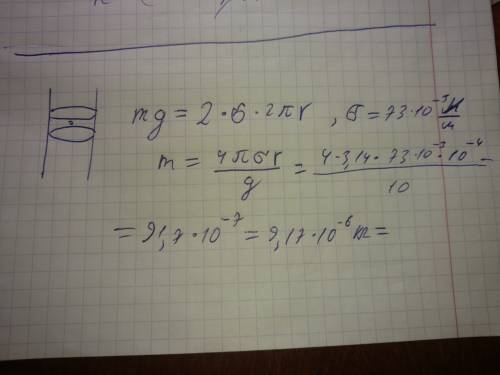 mg = 2 · б · 2πr , б = 73·10⁻³ Н/м
m = 4πбr/g = 4·3,14·73·10⁻³·10⁻⁴/10 =
= 91,7·10⁻⁷ = 9,17·10⁻⁶ m =